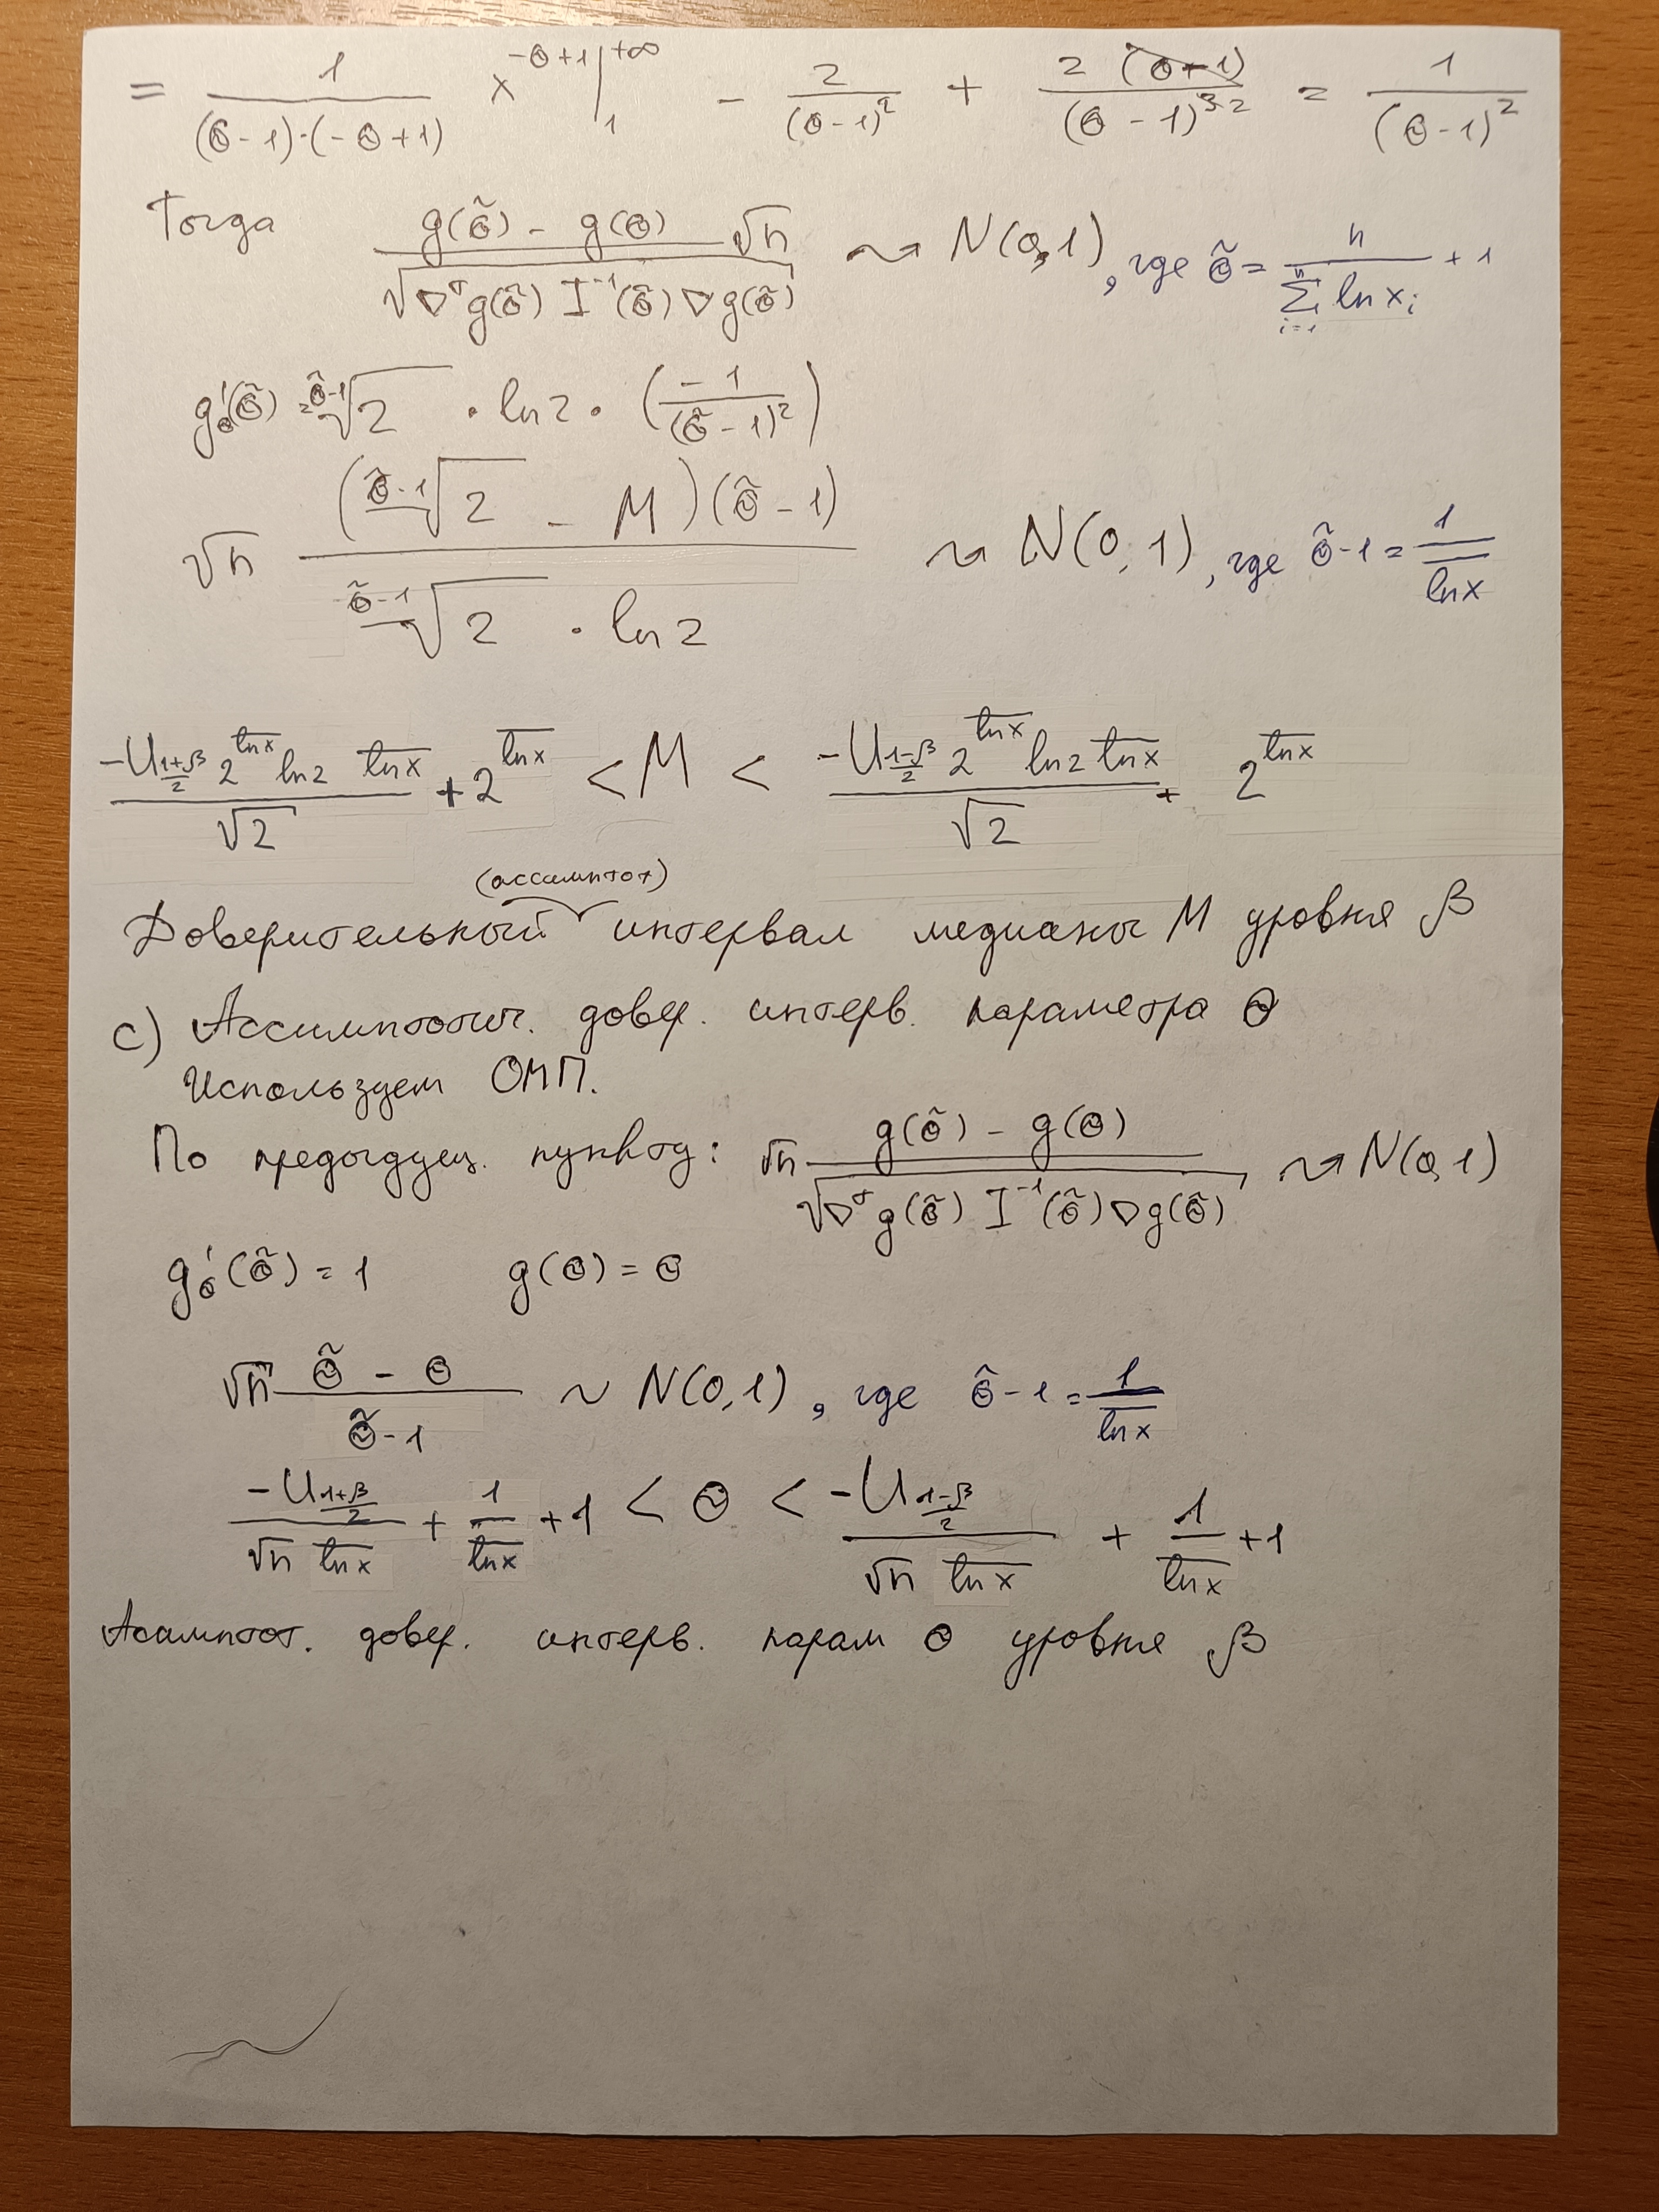 = 1/((θ-1)·(-θ+1)) x^(-θ+1) |_1^(+∞) - 2/(θ-1)^2 + 2(θ-1)/(θ-1)^(3 2) = 1/(θ-1)^2
Тогда (g(θ̃) - g(θ))/√(∇ᵀg(θ̃) I⁻¹(θ̃) ∇g(θ̃)) √n ⇝ N(0,1), где θ̃ = n/(∑_{i=1}^n ln x_i) + 1
g'_θ(θ̃) = ^(θ̃-1)√2 · ln2 · (-1/(θ̃-1)^2)
√n ((^(θ̃-1)√2 - M)(θ̃-1))/(^(θ̃-1)√2 · ln2) ⇝ N(0,1), где θ̃-1 = 1/\overline{ln x}
(-U_{(1+β)/2} 2^{\overline{ln x}} ln2 \overline{ln x})/√2 + 2^{\overline{ln x}} < M < (-U_{(1-β)/2} 2^{\overline{ln x}} ln2 \overline{ln x})/√2 + 2^{\overline{ln x}}
(ассимптот)
Доверительный интервал медианы M уровня β
c) Ассимптотич. довер. интерв. параметра θ
Используем ОМП.
По предыдущ. пункту: √n (g(θ̃) - g(θ))/√(∇ᵀg(θ̃) I⁻¹(θ̃) ∇g(θ̃)) ⇝ N(0,1)
g'_θ(θ̃) = 1 g(θ) = θ
√n (θ̃ - θ)/(θ̃-1) ~ N(0,1), где θ̃-1 = 1/\overline{ln x}
-U_{(1+β)/2}/(√n \overline{ln x}) + 1/\overline{ln x} + 1 < θ < -U_{(1-β)/2}/(√n \overline{ln x}) + 1/\overline{ln x} + 1
Асимптот. довер. интерв. парам θ уровня β